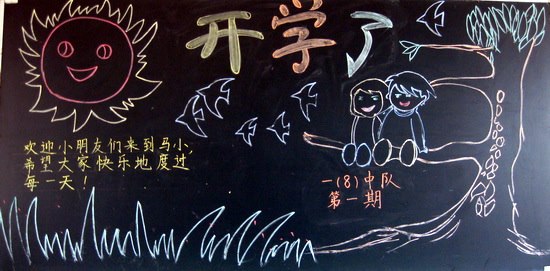 开学了
欢迎小朋友们来到马小,
希望大家快乐地度过
每一天!
一(8)中队
第一期